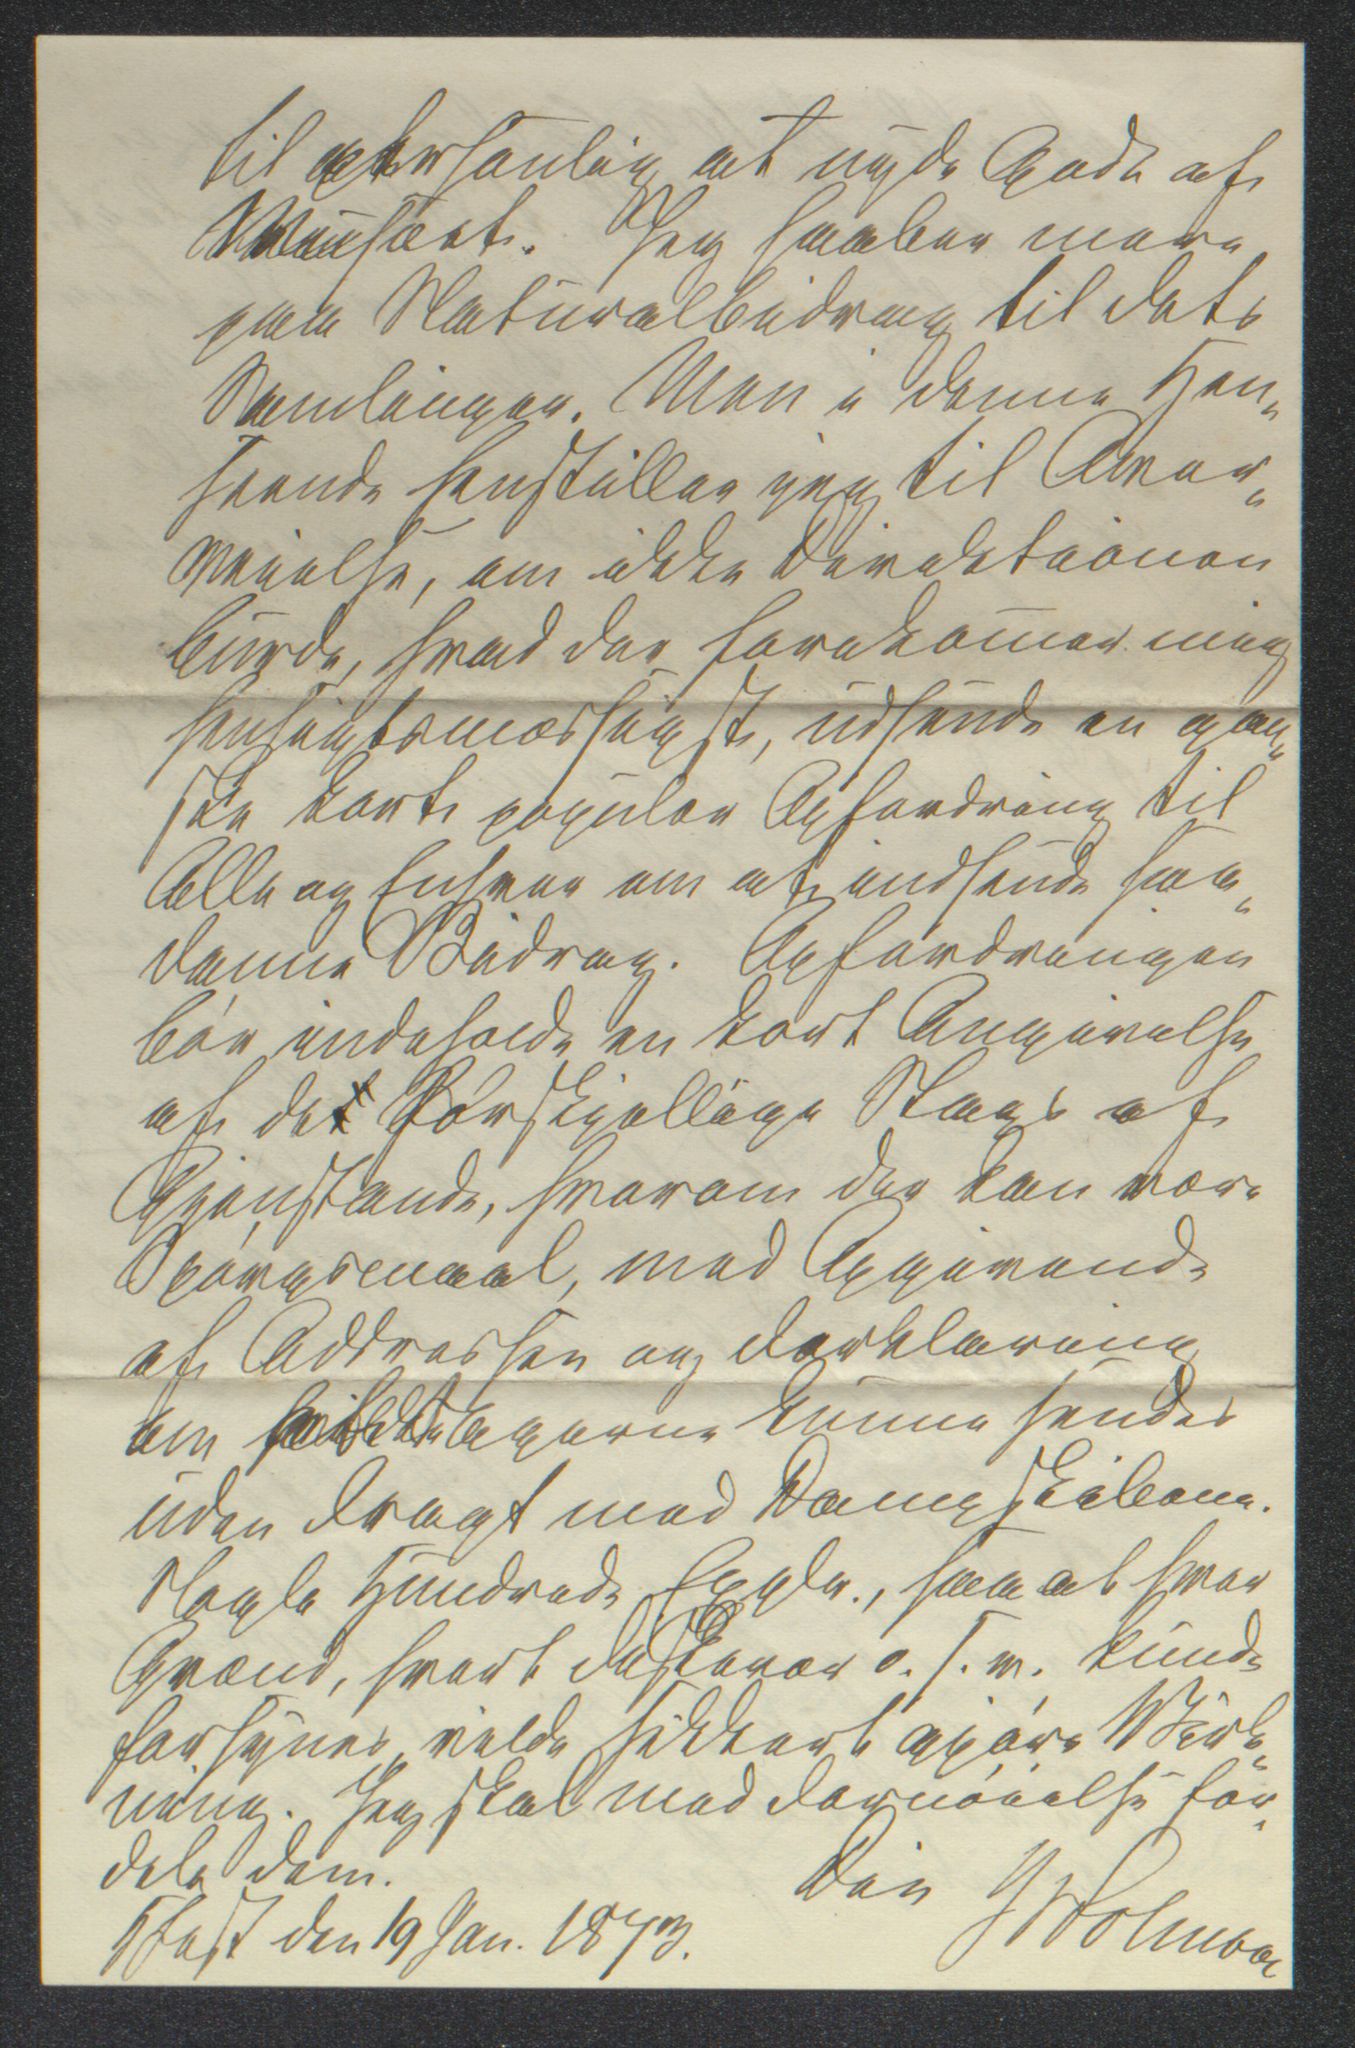 til personlig at nyde Godt af
Museet. Jeg haaber mere
paa Naturalbidrag til dets
Samlinger. Men i denne Hen„
seende henstiller jeg til Over„
veielse, om ikke Direktionen
burde, hvad der forekommer mig
hensigtsmæssigst, udsende en gan„
ske kort populær Opfordring til
Alle og Enhver om at indsende saa„
danne Bidrag. Opfordringen
bør indeholde en kort Angivelse
af de forskjellige Slags af
Gjenstande, hvorom der kan være
Spørgsmaal, med Opgivende
af Addressen og Forklaring
om
kunne sendes
uden Fragt med Dampskibene.
Nogle Hundrede Explr., saa at hver
Grænd, hvert Fiskevær o. s. v. kunde
forsynes, vilde sikkert gjøre Virk„
ning. Jeg skal med Fornøielse for„
dele dem.
Din
den 19 Jan. 1873.